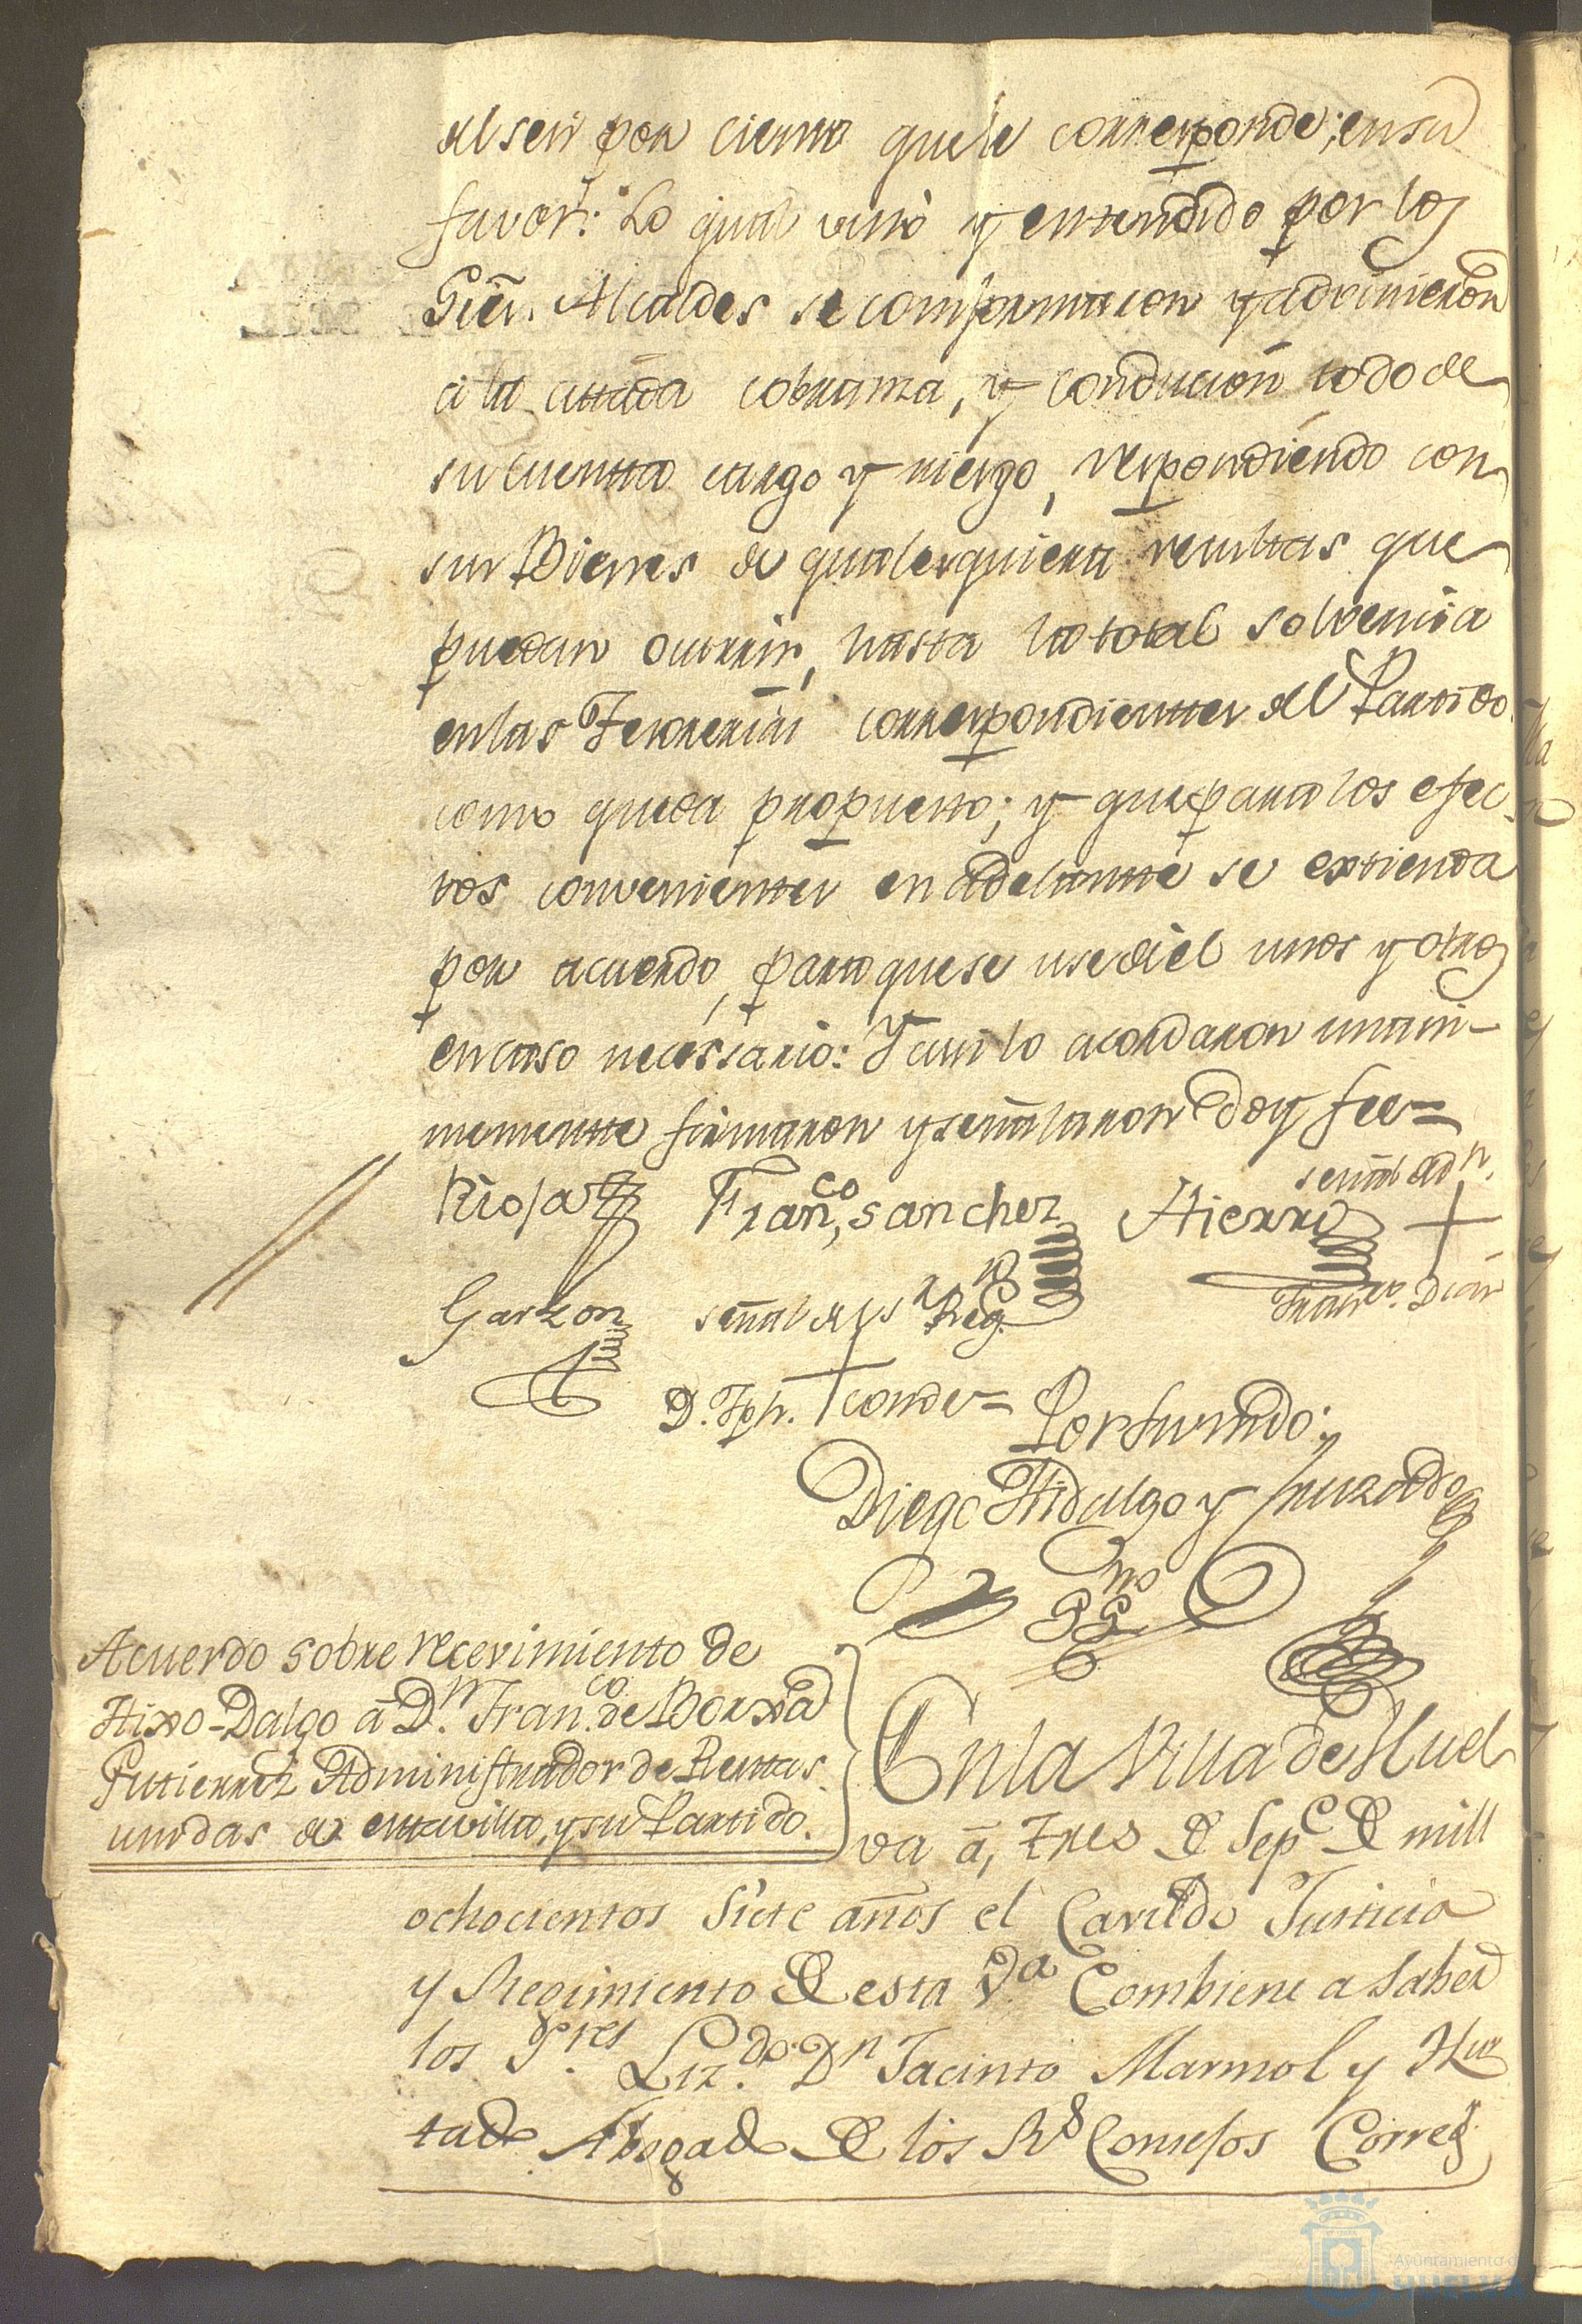 del seis por ciento que le corresponde; en su
favor: Lo qual visto y entendido por los
Sres. Alcaldes se conformaron y advinieron
a la cittada cobranza, y condución todo de
su cuentta cargo y riesgo, respondiendo con
sus Bienes de qualesquiera resultas que
puedan ocurrir, hasta la total solvencia
en las Tesorerías correspondienttes del Partido
como queda propuesto; y que para los efec-
tos convenienttes en adelantte se extienda
por acuerdo, para que se use de él unos y otros
en caso necessario: Y assi lo acordaron unani-
mementte firmaron y señalaron doy fee=
Rioja Franco. Sanchez Hierro señal de Dn.
Garzon señal del Sr. Regor. Franco. Diaz
D. Jph. Conde=
Por su mdo.
Diego Hidalgo y Hurtado
Acuerdo sobre recevimiento de
Hixo-Dalgo á Dn. Franco. de Borxa
Gutierrez Administrador de Rentas
unidas de estta villa, y su Partido.
En la Villa de Huel
va á, tres de Sepe. de mill
ochocientos Siete años el Cavildo Justicia
y Regimiento de esta Va. Combiene a Saber
los Sres. Lizdo. Dn Jacinto Marmol y Hur
tado Abogado de los Rs Consejos Correg
Ayuntamiento de
HUELVA